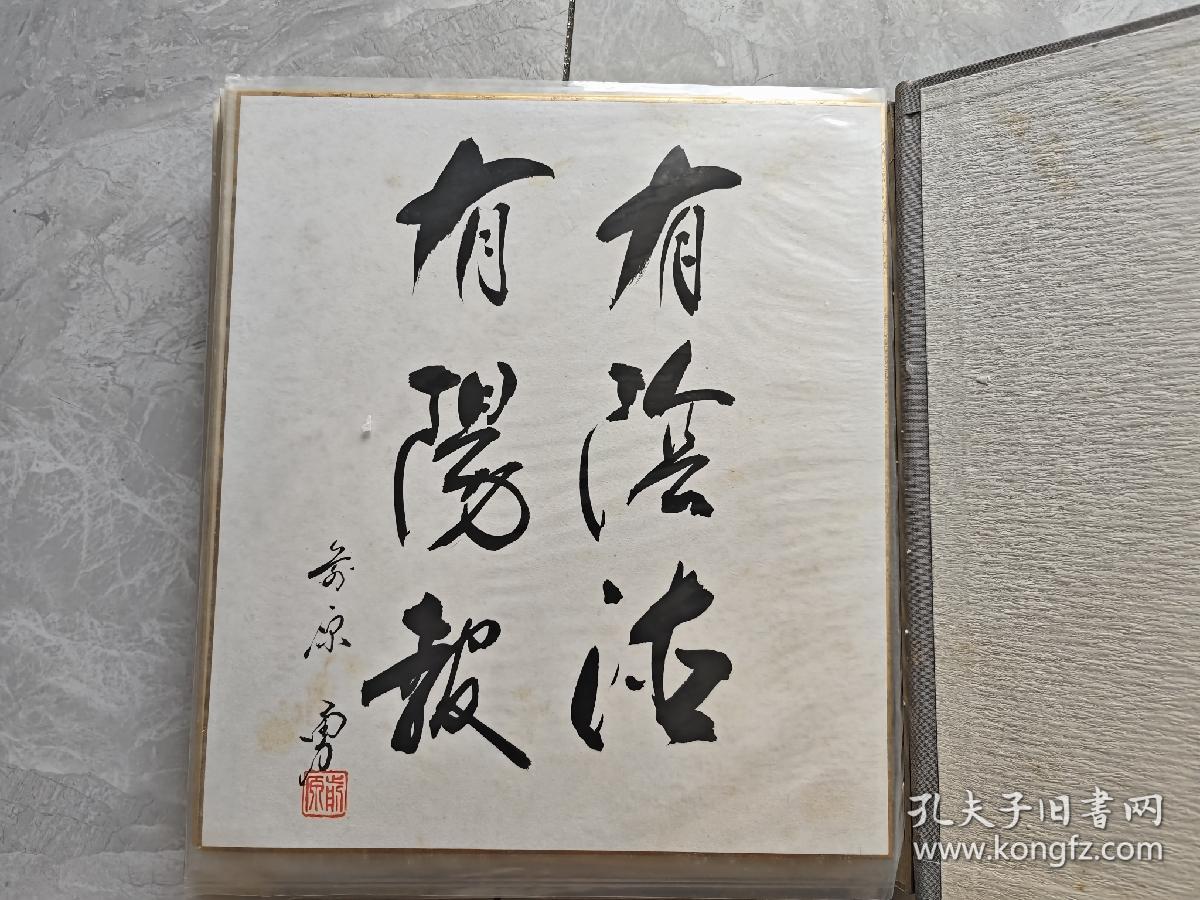 有陰徳
有陽報
前原 勇
前原
孔夫子旧书网
www.kongfz.com